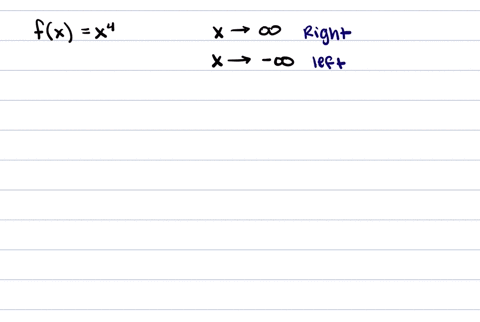 f(x) = x⁴ x → ∞ Right
x → -∞ left